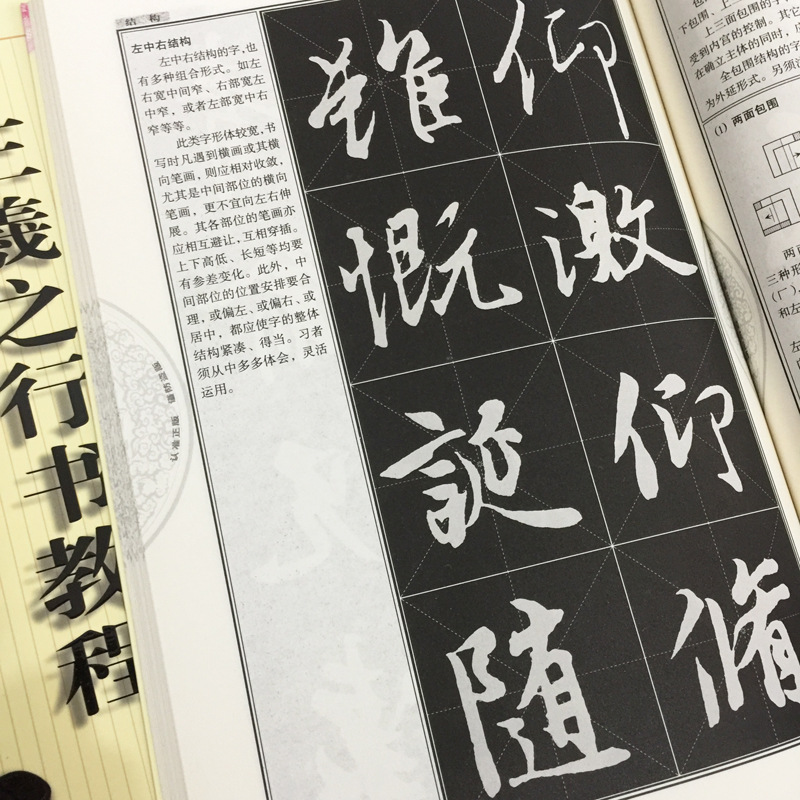 王羲之行书教程
结 构
左中右结构
左中右结构的字，也
有多种组合形式。如左
右宽中间窄、右部宽左
中窄，或者左部宽中右
窄等等。
此类字形体较宽，书
写时凡遇到横画或其横
向笔画，则应相对收敛，
尤其是中间部位的横向
笔画，更不宜向左右伸
展。其各部位的笔画亦
应相互避让，互相穿插。
上下高低、长短等均要
有参差变化。此外，中
间部位的位置安排要合
理，或偏左、或偏右、或
居中，都应使字的整体
结构紧凑、得当。习者
须从中多多体会，灵活
运用。
认准正版
雖 仰
慨 激
誕 仰
随 脩
下包围、上
上三面包围的字
受到内宫的控制。其它
在确立主体的同时，
全包围结构的字
为外延形式。另须
(1) 两面包围
两
三种形
(厂)、
和左
左